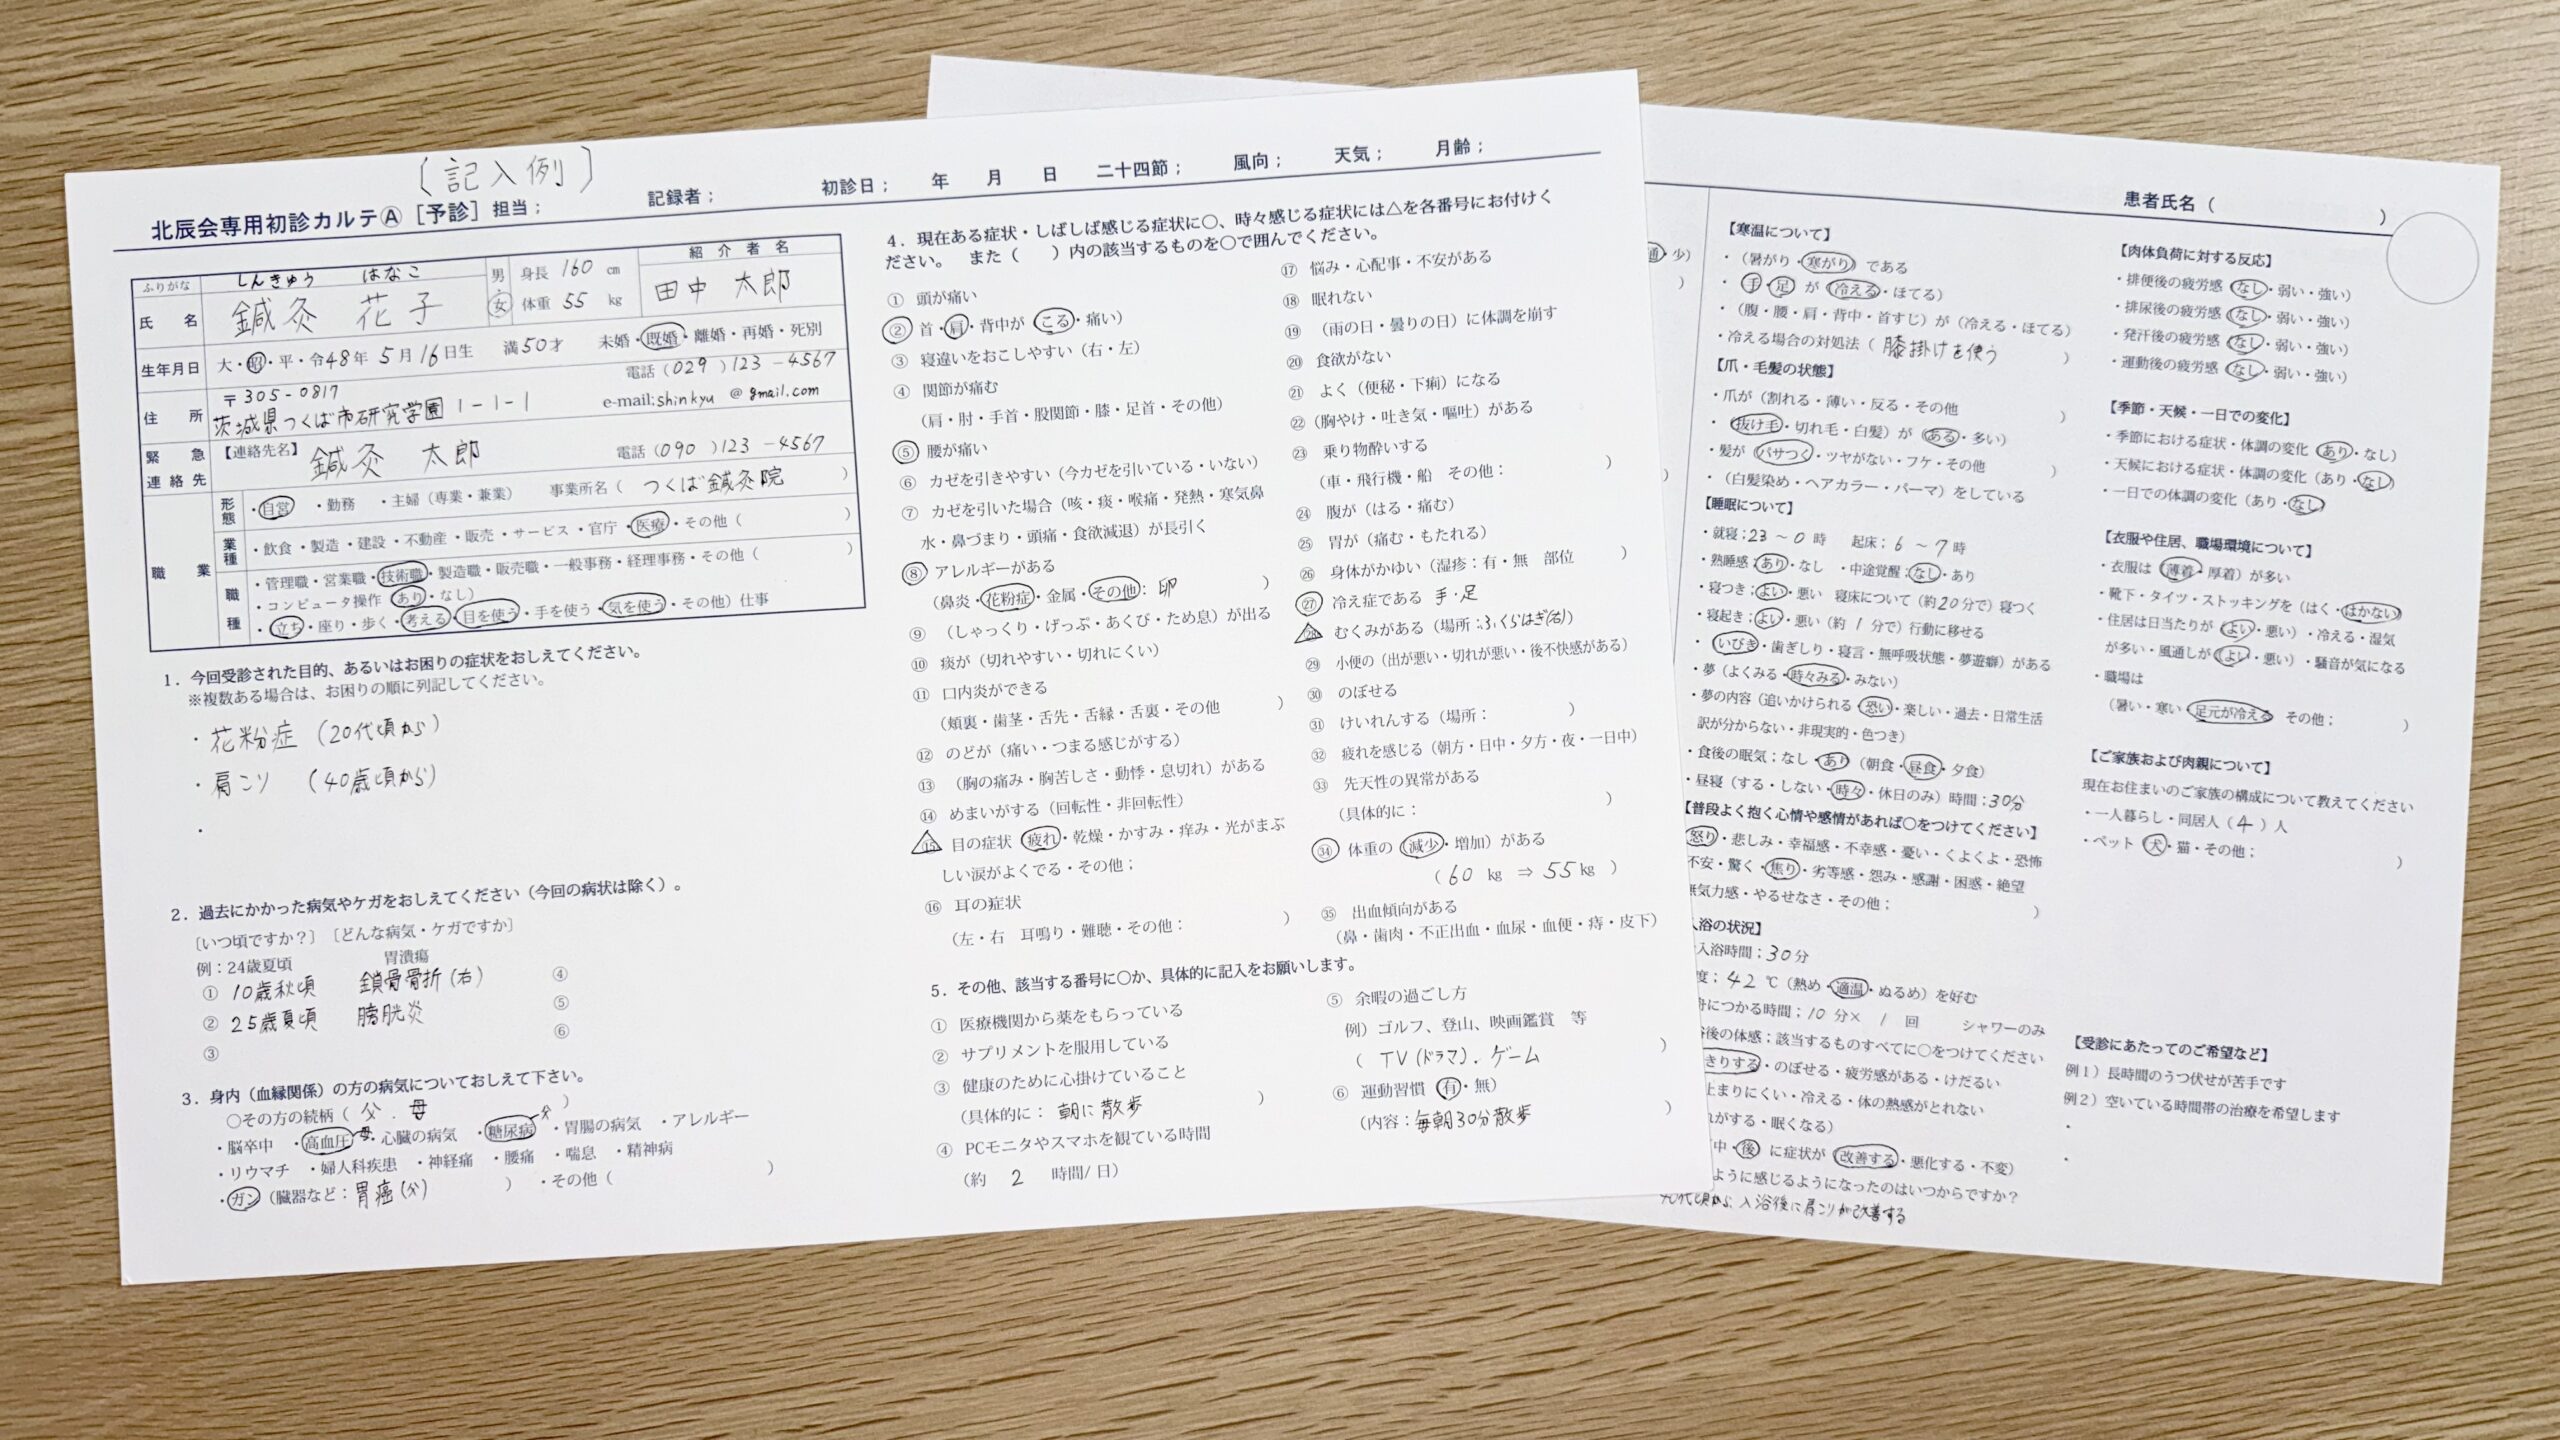 〔記入例〕
北辰会専用初診カルテⒶ［予診］担当； 記録者； 初診日； 年 月 日 二十四節； 風向； 天気； 月齢；
ふりがな しんきゅう はなこ
氏 名 鍼灸 花子
男・女 身長 160 cm
体重 55 kg
紹介者名
田中 太郎
生年月日 大・昭・平・令48年 5月16日生 満50才 未婚・既婚・離婚・再婚・死別
住 所 〒305-0817 電話（029）123-4567
茨城県つくば市研究学園 1-1-1 e-mail:shinkyu @gmail.com
緊急連絡先 【連絡先名】 鍼灸 太郎 電話（090）123-4567
職業
形態 ・自営 ・勤務 ・主婦（専業・兼業） 事業所名（ つくば鍼灸院 ）
業種 ・飲食・製造・建設・不動産・販売・サービス・官庁・医療・その他（ ）
職種 ・管理職・営業職・技術職・製造職・販売職・一般事務・経理事務・その他（ ）
・コンピュータ操作（あり・なし）
・（立ち・座り・歩く・考える・目を使う・手を使う・気を使う・その他）仕事
1．今回受診された目的、あるいはお困りの症状をおしえてください。
※複数ある場合は、お困りの順に列記してください。
・花粉症（20代頃から）
・肩こり （40歳頃から）
・
2．過去にかかった病気やケガをおしえてください（今回の病状は除く）。
〔いつ頃ですか？〕〔どんな病気・ケガですか〕
例：24歳夏頃 胃潰瘍
① 10歳秋頃 鎖骨骨折（右） ④
② 25歳夏頃 膀胱炎 ⑤
③ ⑥
3．身内（血縁関係）の方の病気についておしえて下さい。
○その方の続柄（ 父．母 ）
・脳卒中 ・高血圧 母 ・心臓の病気 ・糖尿病 父 ・胃腸の病気 ・アレルギー
・リウマチ ・婦人科疾患 ・神経痛 ・腰痛 ・喘息 ・精神病
・ガン（臓器など：胃癌（父） ） ・その他（ ）
4．現在ある症状・しばしば感じる症状に○、時々感じる症状には△を各番号にお付けく
ださい。 また（ ）内の該当するものを○で囲んでください。
① 頭が痛い
② 首・肩・背中が（こる・痛い）
③ 寝違いをおこしやすい（右・左）
④ 関節が痛む
（肩・肘・手首・股関節・膝・足首・その他）
⑤ 腰が痛い
⑥ カゼを引きやすい（今カゼを引いている・いない）
⑦ カゼを引いた場合（咳・痰・喉痛・発熱・寒気鼻
水・鼻づまり・頭痛・食欲減退）が長引く
⑧ アレルギーがある
（鼻炎・花粉症・金属・その他：卵 ）
⑨ （しゃっくり・げっぷ・あくび・ため息）が出る
⑩ 痰が（切れやすい・切れにくい）
⑪ 口内炎ができる
（頬裏・歯茎・舌先・舌縁・舌裏・その他 ）
⑫ のどが（痛い・つまる感じがする）
⑬ （胸の痛み・胸苦しさ・動悸・息切れ）がある
⑭ めまいがする（回転性・非回転性）
⑮ 目の症状（疲れ・乾燥・かすみ・痒み・光がまぶ
しい涙がよくでる・その他；
⑯ 耳の症状
（左・右 耳鳴り・難聴・その他： ）
⑰ 悩み・心配事・不安がある
⑱ 眠れない
⑲ （雨の日・曇りの日）に体調を崩す
⑳ 食欲がない
㉑ よく（便秘・下痢）になる
㉒（胸やけ・吐き気・嘔吐）がある
㉓ 乗り物酔いする
（車・飛行機・船 その他： ）
㉔ 腹が（はる・痛む）
㉕ 胃が（痛む・もたれる）
㉖ 身体がかゆい（湿疹：有・無 部位 ）
㉗ 冷え症である 手・足
㉘ むくみがある（場所：ふくらはぎ（右））
㉙ 小便の（出が悪い・切れが悪い・後不快感がある）
㉚ のぼせる
㉛ けいれんする（場所： ）
㉜ 疲れを感じる（朝方・日中・夕方・夜・一日中）
㉝ 先天性の異常がある
（具体的に： ）
㉞ 体重の（減少・増加）がある
（ 60 kg ⇒ 55 kg ）
㉟ 出血傾向がある
（鼻・歯肉・不正出血・血尿・血便・痔・皮下）
5．その他、該当する番号に○か、具体的に記入をお願いします。
① 医療機関から薬をもらっている
② サプリメントを服用している
③ 健康のために心掛けていること
（具体的に： 朝に散歩 ）
④ PCモニタやスマホを観ている時間
（約 2 時間/日）
⑤ 余暇の過ごし方
例）ゴルフ、登山、映画鑑賞 等
（ TV（ドラマ）．ゲーム ）
⑥ 運動習慣（有・無）
（内容：毎朝30分散歩 ）
患者氏名（ ）
・少）
）
【寒温について】
・（暑がり・寒がり）である
・（手・足 が（冷える・ほてる）
・（腹・腰・肩・背中・首すじ）が（冷える・ほてる）
・冷える場合の対処法（ 膝掛けを使う ）
【爪・毛髪の状態】
・爪が（割れる・薄い・反る・その他 ）
・（抜け毛・切れ毛・白髪）が（ある・多い）
・髪が（パサつく・ツヤがない・フケ・その他 ）
・（白髪染め・ヘアカラー・パーマ）をしている
【睡眠について】
・就寝；23 ～ 0 時 起床；6 ～ 7 時
・熟睡感；あり・なし ・中途覚醒；なし・あり
・寝つき；よい・悪い 寝床について（約20分で）寝つく
・寝起き；よい・悪い（約 1 分で）行動に移せる
・（いびき・歯ぎしり・寝言・無呼吸状態・夢遊癖）がある
・夢（よくみる・時々みる・みない）
・夢の内容（追いかけられる・恐い・楽しい・過去・日常生活
訳が分からない・非現実的・色つき）
・食後の眠気；なし・あり（朝食・昼食・夕食）
・昼寝（する・しない・時々・休日のみ）時間；30分
【普段よく抱く心情や感情があれば○をつけてください】
怒り・悲しみ・幸福感・不幸感・憂い・くよくよ・恐怖
不安・驚く・焦り・劣等感・怨み・感謝・困惑・絶望
無気力感・やるせなさ・その他； ）
入浴の状況】
入浴時間；30分
度；42 ℃（熱め・適温・ぬるめ）を好む
舟につかる時間；10 分× 1 回 シャワーのみ
浴後の体感；該当するものすべてに○をつけてください
きりする・のぼせる・疲労感がある・けだるい
止まりにくい・冷える・体の熱感がとれない
がする・眠くなる）
中・後 に症状が（改善する・悪化する・不変）
ように感じるようになったのはいつからですか？
40代頃から、入浴後に肩こりが改善する
【肉体負荷に対する反応】
・排便後の疲労感（なし・弱い・強い）
・排尿後の疲労感（なし・弱い・強い）
・発汗後の疲労感（なし・弱い・強い）
・運動後の疲労感（なし・弱い・強い）
【季節・天候・一日での変化】
・季節における症状・体調の変化（あり・なし）
・天候における症状・体調の変化（あり・なし）
・一日での体調の変化（あり・なし）
【衣服や住居、職場環境について】
・衣服は（薄着・厚着）が多い
・靴下・タイツ・ストッキングを（はく・はかない）
・住居は日当たりが（よい・悪い）・冷える・湿気
が多い・風通しが（よい・悪い）・騒音が気になる
・職場は
（暑い・寒い・足元が冷える その他； ）
【ご家族および肉親について】
現在お住まいのご家族の構成について教えてください
・一人暮らし・同居人（ 4 ）人
・ペット（犬・猫・その他； ）
【受診にあたってのご希望など】
例１）長時間のうつ伏せが苦手です
例２）空いている時間帯の治療を希望します
・
・